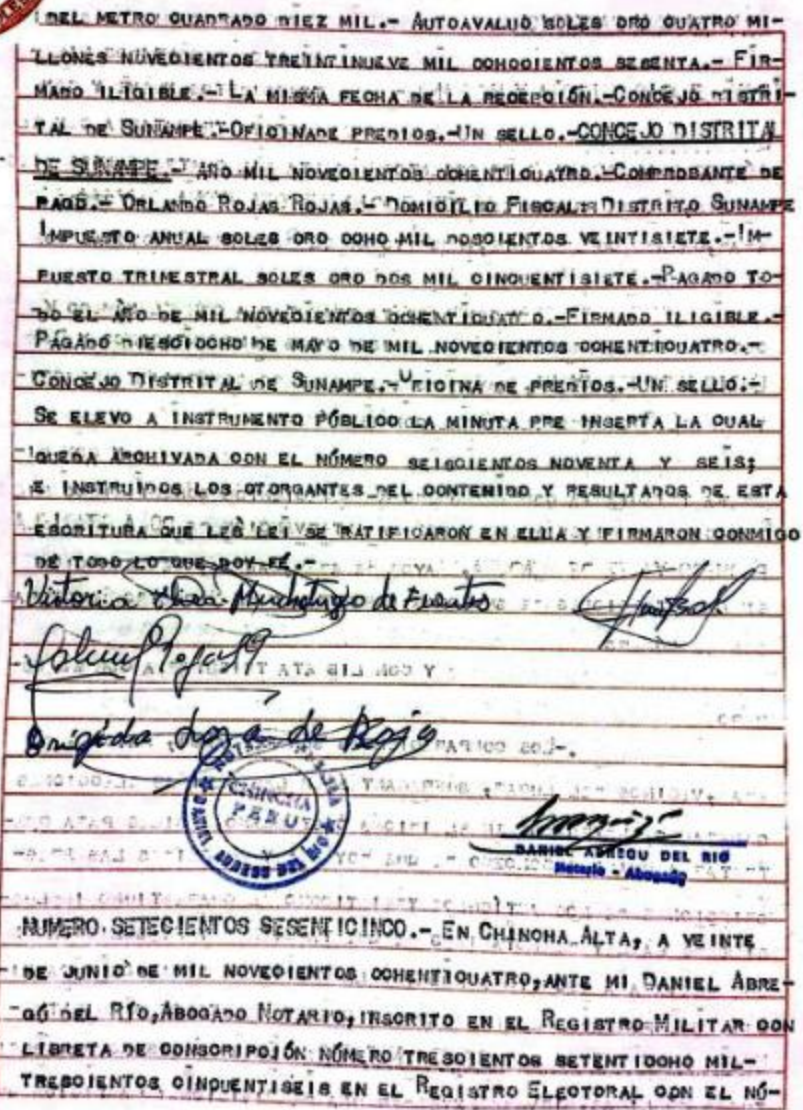 DEL METRO CUADRADO DIEZ MIL.- AUTOAVALUO SOLES ORO CUATRO MI-
LLONES NUVECIENTOS TREINTINUEVE MIL OCHOCIENTOS SESENTA.- FIR-
MADO ILIGIBLE.- LA MISMA FECHA DE LA RECEPCIÓN.-CONCEJO DISTRI-
TAL DE SUNAMPE.-OFICINADE PREDIOS.-UN SELLO.-CONCEJO DISTRITAL
DE SUNAMPE.- AÑO MIL NOVECIENTOS OCHENTICUATRO.-COMPROBANTE DE
PAGO.- ORLANDO ROJAS ROJAS.- DOMICILIO FISCAL: DISTRITO SUNAMPE
IMPUESTO ANUAL SOLES ORO OCHO MIL DOSCIENTOS VEINTISIETE.-IM-
PUESTO TRIMESTRAL SOLES ORO DOS MIL CINCUENTISIETE.-PAGADO TO-
DO EL AÑO DE MIL NOVECIENTOS OCHENTICUATRO.-FIRMADO ILIGIBLE.-
PAGADO DIESCIOCHO DE MAYO DE MIL NOVECIENTOS OCHENTICUATRO.-
CONCEJO DISTRITAL DE SUNAMPE.-OFICINA DE PREDIOS.-UN SELLO.-
SE ELEVO A INSTRUMENTO PÚBLICO LA MINUTA PRE INSERTA LA CUAL
QUEDA ARCHIVADA CON EL NÚMERO SEISCIENTOS NOVENTA Y SEIS;
E INSTRUIDOS LOS OTORGANTES DEL CONTENIDO Y RESULTADOS DE ESTA
ESCRITURA QUE LES LEI SE RATIFICARON EN ELLA Y FIRMARON CONMIGO
DE TODO LO QUE DOY FÉ.-
Victoria de Fuentes
Brigida Loza de Rojas
CHINCHA
PERU
DANIEL ABREGU DEL RIO
Notario - Abogado
NUMERO SETECIENTOS SESENTICINCO.- EN CHINCHA ALTA, A VEINTE
DE JUNIO DE MIL NOVECIENTOS OCHENTICUATRO, ANTE MI DANIEL ABRE-
GÚ DEL RÍO, ABOGADO NOTARIO, INSCRITO EN EL REGISTRO MILITAR CON
LIBRETA DE CONSCRIPCIÓN NÚMERO TRESCIENTOS SETENTIOCHO MIL-
TRESCIENTOS CINCUENTISEIS EN EL REGISTRO ELECTORAL CON EL NÚ-